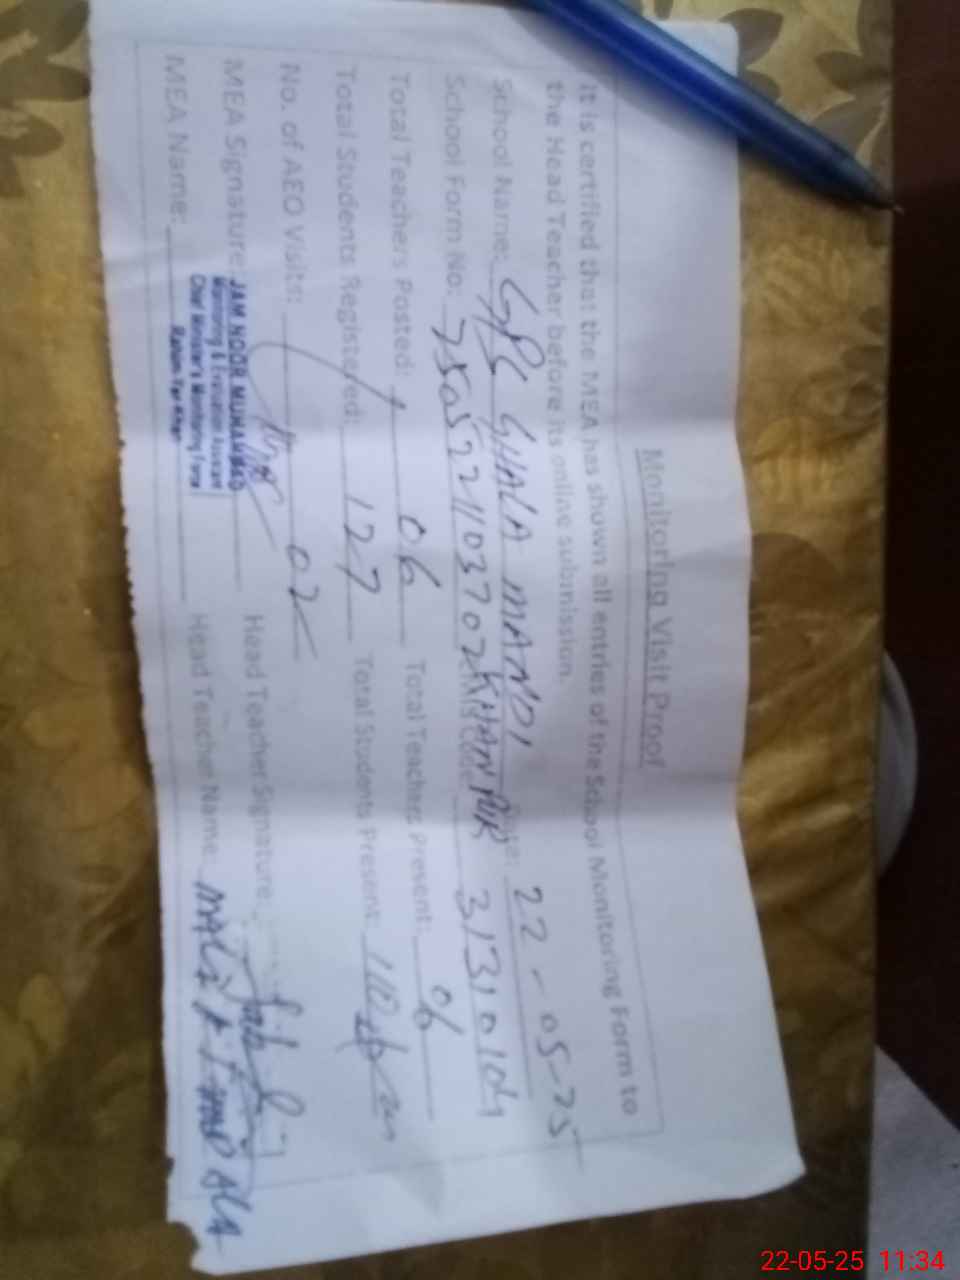 Monitoring Visit Proof
It is certified that the MEA has shown all entries of the School Monitoring Form to
the Head Teacher before its online submission.
School Name: GPS GHALA MANDI 22-05-25
School Form No: KHANPUR 31310104
Total Teachers Posted: 06 Total Teachers Present: 06
Total Students Registered: 127 Total Students Present:
No. of AEO Visits: 02
MEA Signature: Head Teacher Signature:
JAM NOOR MUHAMMAD
Monitoring & Evaluation Assistant
Chief Minister's Monitoring Force
Rahim Yar Khan
MEA Name: Head Teacher Name:
22-05-25 11:34